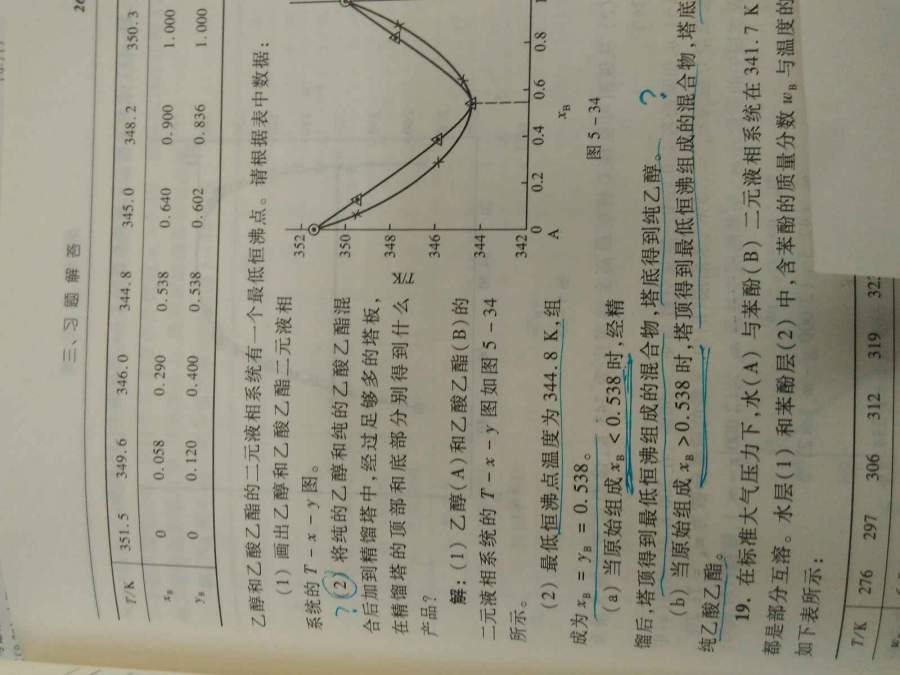 三、习 题 解 答
T/K 351.5 349.6 346.0 344.8 345.0 348.2 350.3
xB 0 0.058 0.290 0.538 0.640 0.900 1.000
yB 0 0.120 0.400 0.538 0.602 0.836 1.000
乙醇和乙酸乙酯的二元液相系统有一个最低恒沸点。请根据表中数据:
(1) 画出乙醇和乙酸乙酯二元液相
系统的 T-x-y 图。
?(2) 将纯的乙醇和纯的乙酸乙酯混
合后加到精馏塔中,经过足够多的塔板,
在精馏塔的顶部和底部分别得到什么
产品?
解:(1) 乙醇(A)和乙酸乙酯(B)的
二元液相系统的 T-x-y 图如图 5-34
所示。
(2) 最低恒沸点温度为 344.8 K,组
成为 xB = yB = 0.538。
352
350
348
346
344
342
T/K
0 0.2 0.4 0.6 0.8 1
A xB
图 5-34
(a) 当原始组成 xB < 0.538 时,经精
馏后,塔顶得到最低恒沸组成的混合物,塔底得到纯乙醇。 ?
(b) 当原始组成 xB > 0.538 时,塔顶得到最低恒沸组成的混合物,塔底
纯乙酸乙酯。
19. 在标准大气压力下,水(A)与苯酚(B)二元液相系统在 341.7 K
都是部分互溶。水层(1)和苯酚层(2)中,含苯酚的质量分数 wB 与温度的
如下表所示:
T/K 276 297 306 312 319